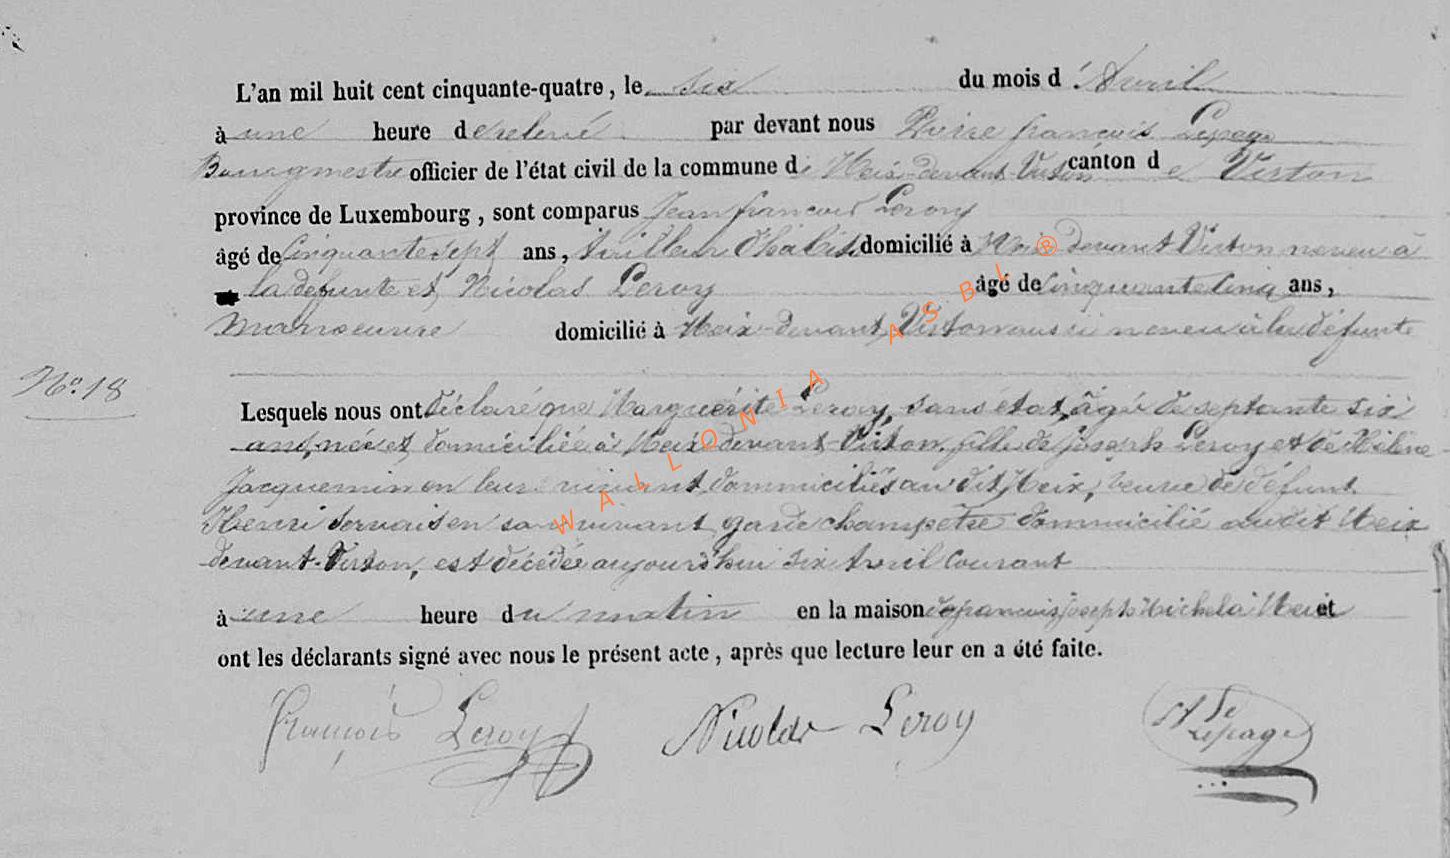 L'an mil huit cent cinquante-quatre, le six du mois d'Avril
à une heure de relevé par devant nous Pierre françois Lepage
Bourgmestre officier de l'état civil de la commune de Meix-devant-Virton canton de Virton
province de Luxembourg, sont comparus Jean francois Leroy
âgé de Cinquante sept ans, tailleur d'habits domicilié à Meix devant Virton neveu à
la defunte et Nicolas Leroy âgé de Cinquante Cinq ans,
Manoeuvre domicilié à Meix-devant-Virton aussi neveu à la défunte
N.o 18
Lesquels nous ont déclaré que Marguérite Leroy, sans état, âgé de septante six
ans, née et domiciliée à Meix-devant-Virton, fille de joseph Leroy et de Hélène
Jacquemin en leur vivant dommiciliés au dit Meix, veuve de défunt
Henri Servais en son vivant garde champetre dommicilié audit Meix
devant-Virton, est décédée aujourd'hui six Avril Courant
à une heure du matin en la maison de francois joseph Michel à Meix et
ont les déclarants signé avec nous le présent acte, après que lecture leur en a été faite.
François Leroy Nicolas Leroy Lepage
WALLONIA ASBL ®